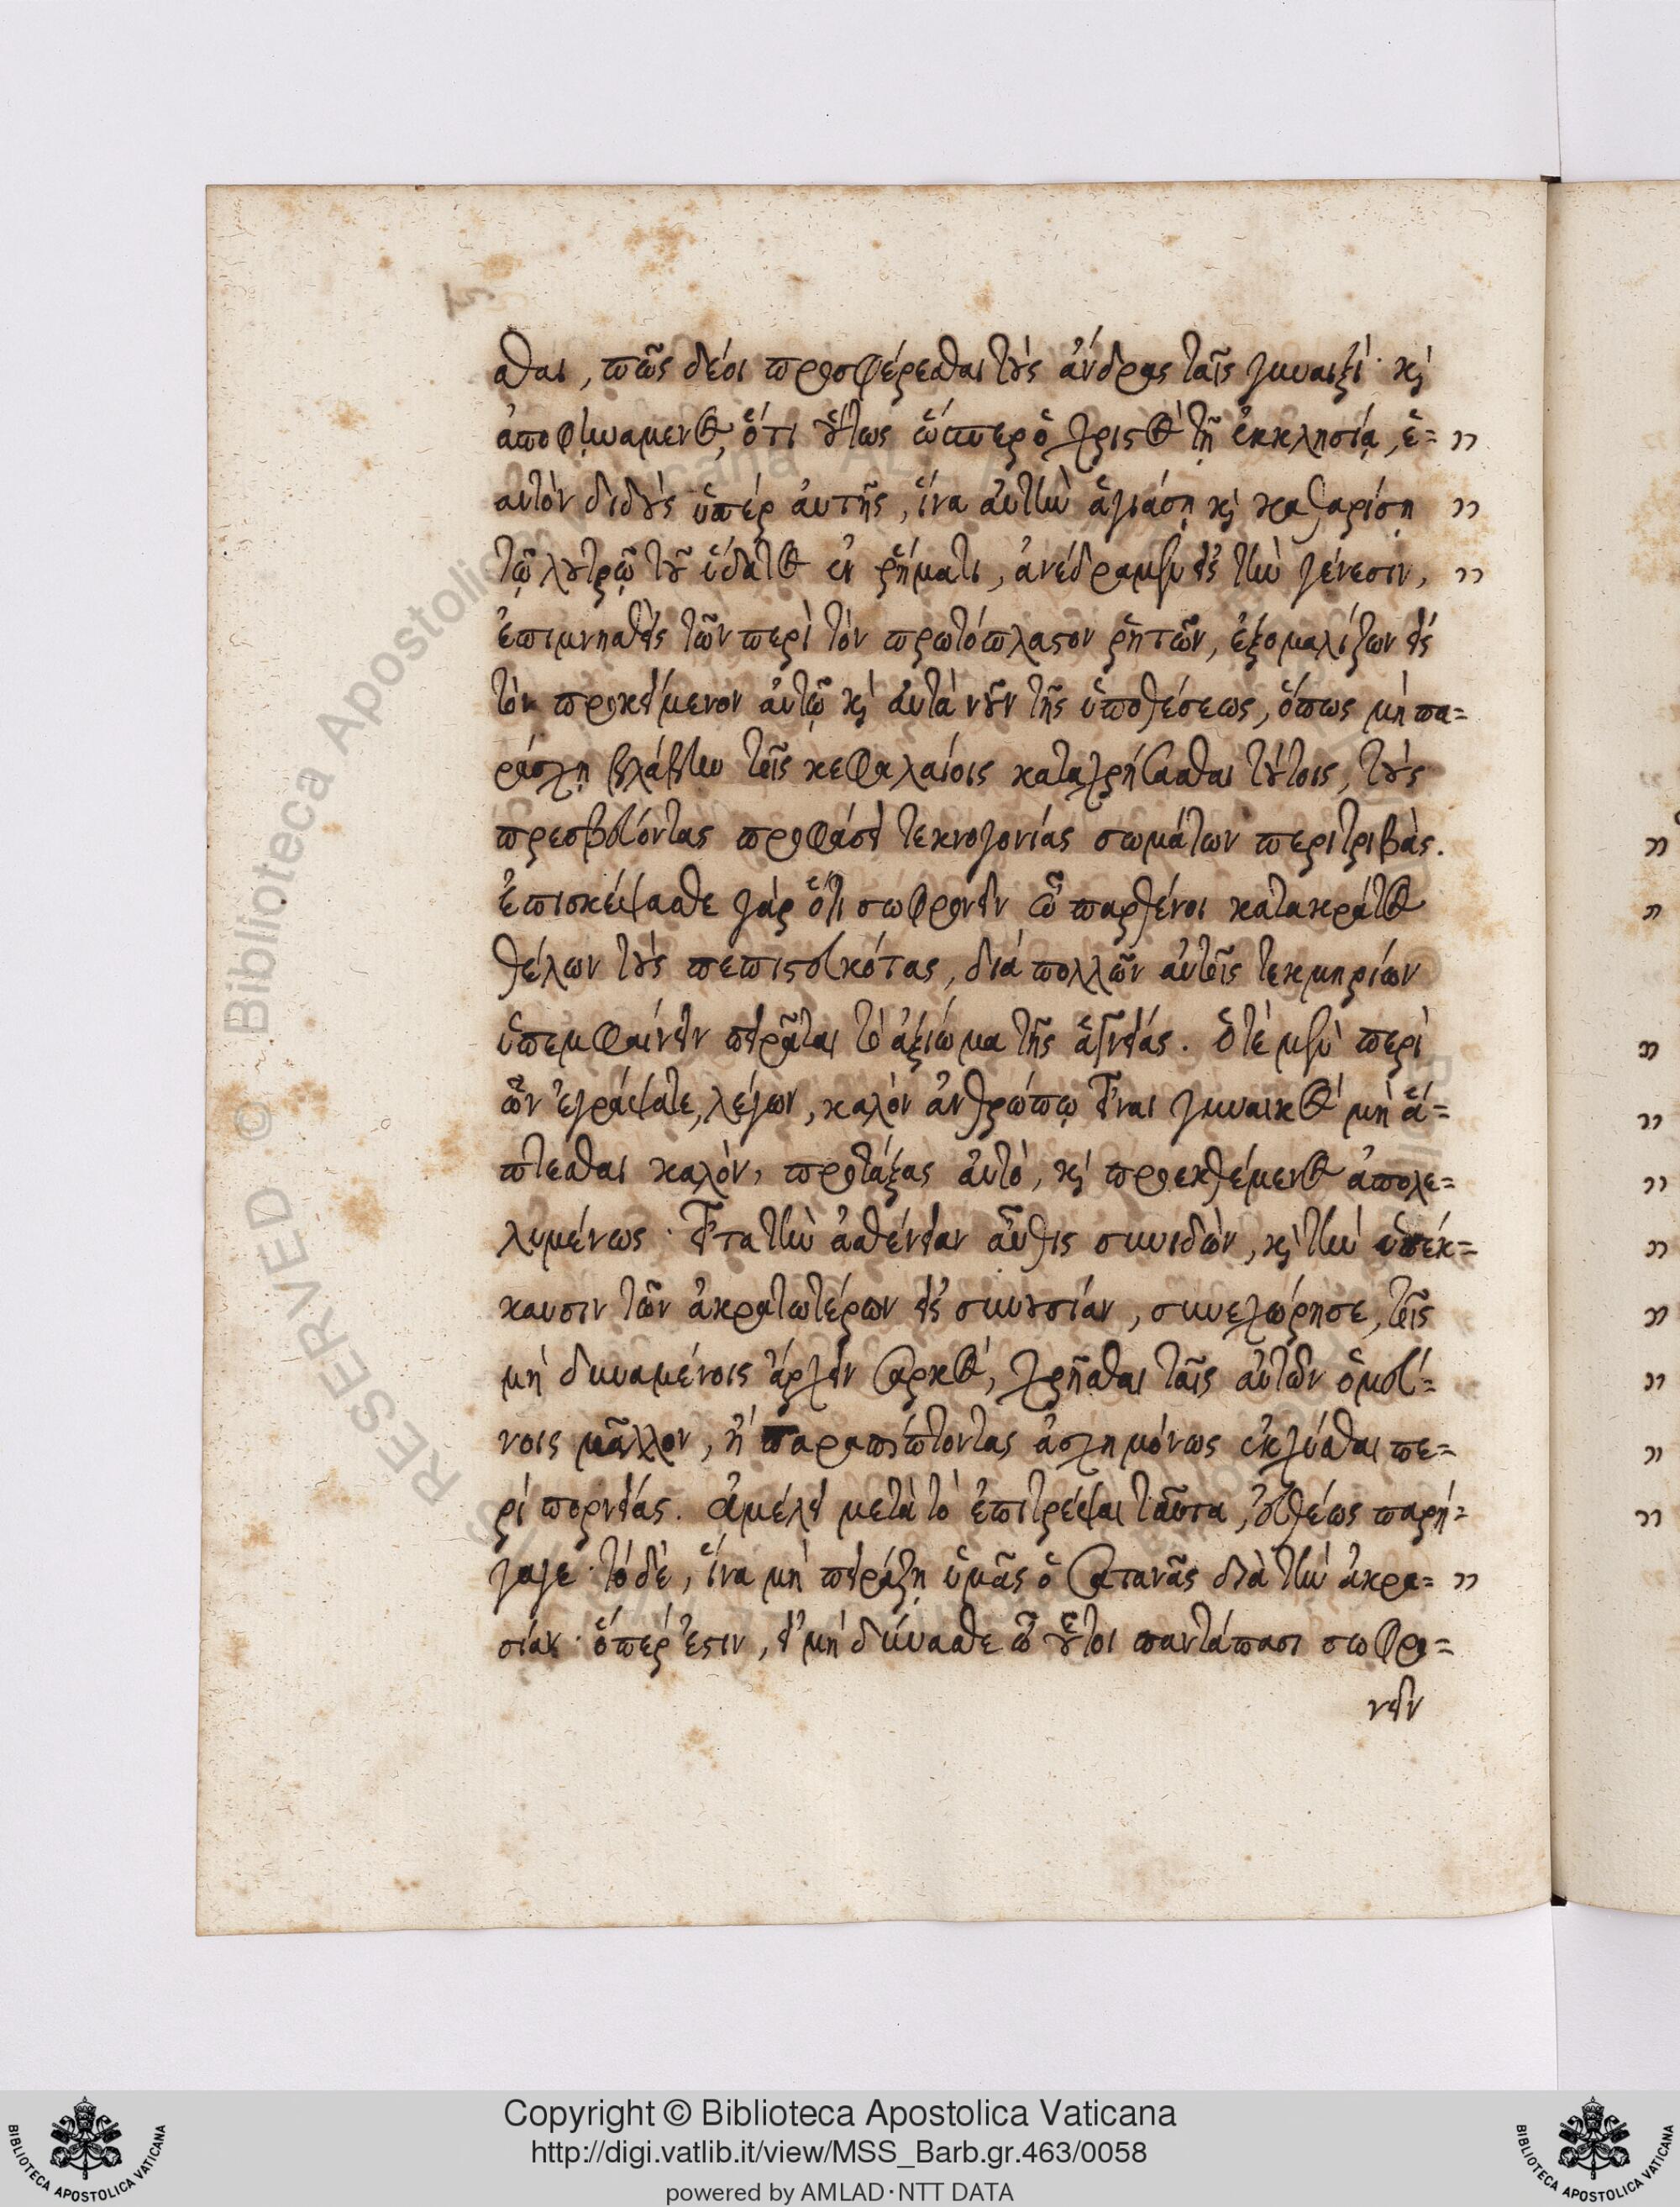 σθαι, πῶς δέοι προσφέρεσθαι τοὺς ἄνδρας ταῖς γυναιξί· κὶ
ἀποφηνάμενος, ὅτι οὕτως ὥσπερ ὁ χριστὸς τῇ ἐκκλησίᾳ, ἑ=
αυτὸν διδοὺς ὑπέρ αὐτῆς, ἵνα αὐτὴν ἁγιάσῃ κὶ καθαρίσῃ
τῷ λουτρῷ τοῦ ὕδατος ἐν ῥήματι, ἀνέδραμεν εἰς τὴν γένεσιν,
ἐπιμνησθεὶς τῶν περὶ τὸν πρωτόπλαστον ῥητῶν, ἐξομαλίζων εἰς
τὸν προκείμενον αὐτῷ κὶ αὐτὰ νοῦν τῆς ὑποθέσεως, ὅπως μὴ πα=
ράσχῃ βλάβην τοῖς κεφαλαίοις καταχρήσασθαι τούτοις, τοὺς
πρεσβεύοντας προφάσει τεκνογονίας σωμάτων περιτριβὰς.
ἐπισκέψασθε γάρ ὅτι σωφρονεῖν ὦ παρθένοι κατακράτος
θέλων τοὺς πεπιστευκότας, διά πολλῶν αὐτοῖς τεκμηρίων
ὑπεμφαίνειν πειρᾶται τὸ ἀξιώμα τῆς ἁγνείας. ὁτὲ μὲν περὶ
ὧν ἐγράψατε, λέγων, καλὸν ἀνθρώπῳ εἶναι γυναικὸς μὴ ἅ=
πτεσθαι καλὸν, προτάξας αὐτὸ, κὶ προεκθέμενος ἀπολε=
λυμένως· εἶτα τὴν ἀσθένειαν αὖθις συνιδὼν, κὶ τὴν ὑπέκ=
καυσιν τῶν ἀκρατωτέρων εἰς συνουσίαν, συνεχώρησε, τοῖς
μὴ δυναμένοις ἄρχειν σαρκὸς, χρῆσθαι ταῖς αὐτῶν ὁμεύ=
νοις μᾶλλον, ἢ παραπίπτοντας ἀσχημόνως ἐκλύσθαι πε=
ρὶ πορνείας. ἀμέλει μετὰ τὸ ἐπιτρέψαι ταῦτα, εὐθέως παρή=
γαγε· τὸ δὲ, ἵνα μὴ πειράζῃ ὑμᾶς ὁ σατανᾶς διὰ τὴν ἀκρα=
σίαν· ὅπέρ ἐστιν, εἰ μὴ δύνασθε ὦ οὗτοι παντάπασι σωφρο=
νεῖν
Copyright © Biblioteca Apostolica Vaticana
http://digi.vatlib.it/view/MSS_Barb.gr.463/0058
powered by AMLAD·NTT DATA
BIBLIOTECA APOSTOLICA VATICANA
BIBLIOTECA APOSTOLICA VATICANA